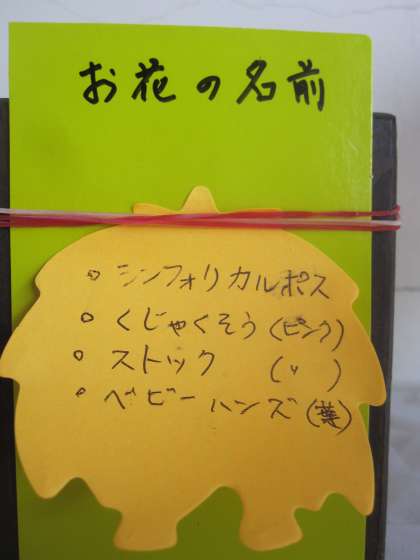 お花の名前
○ シンフォリカルポス
○ くじゃくそう(ピンク)
○ ストック (〃)
○ ベビーハンズ(葉)